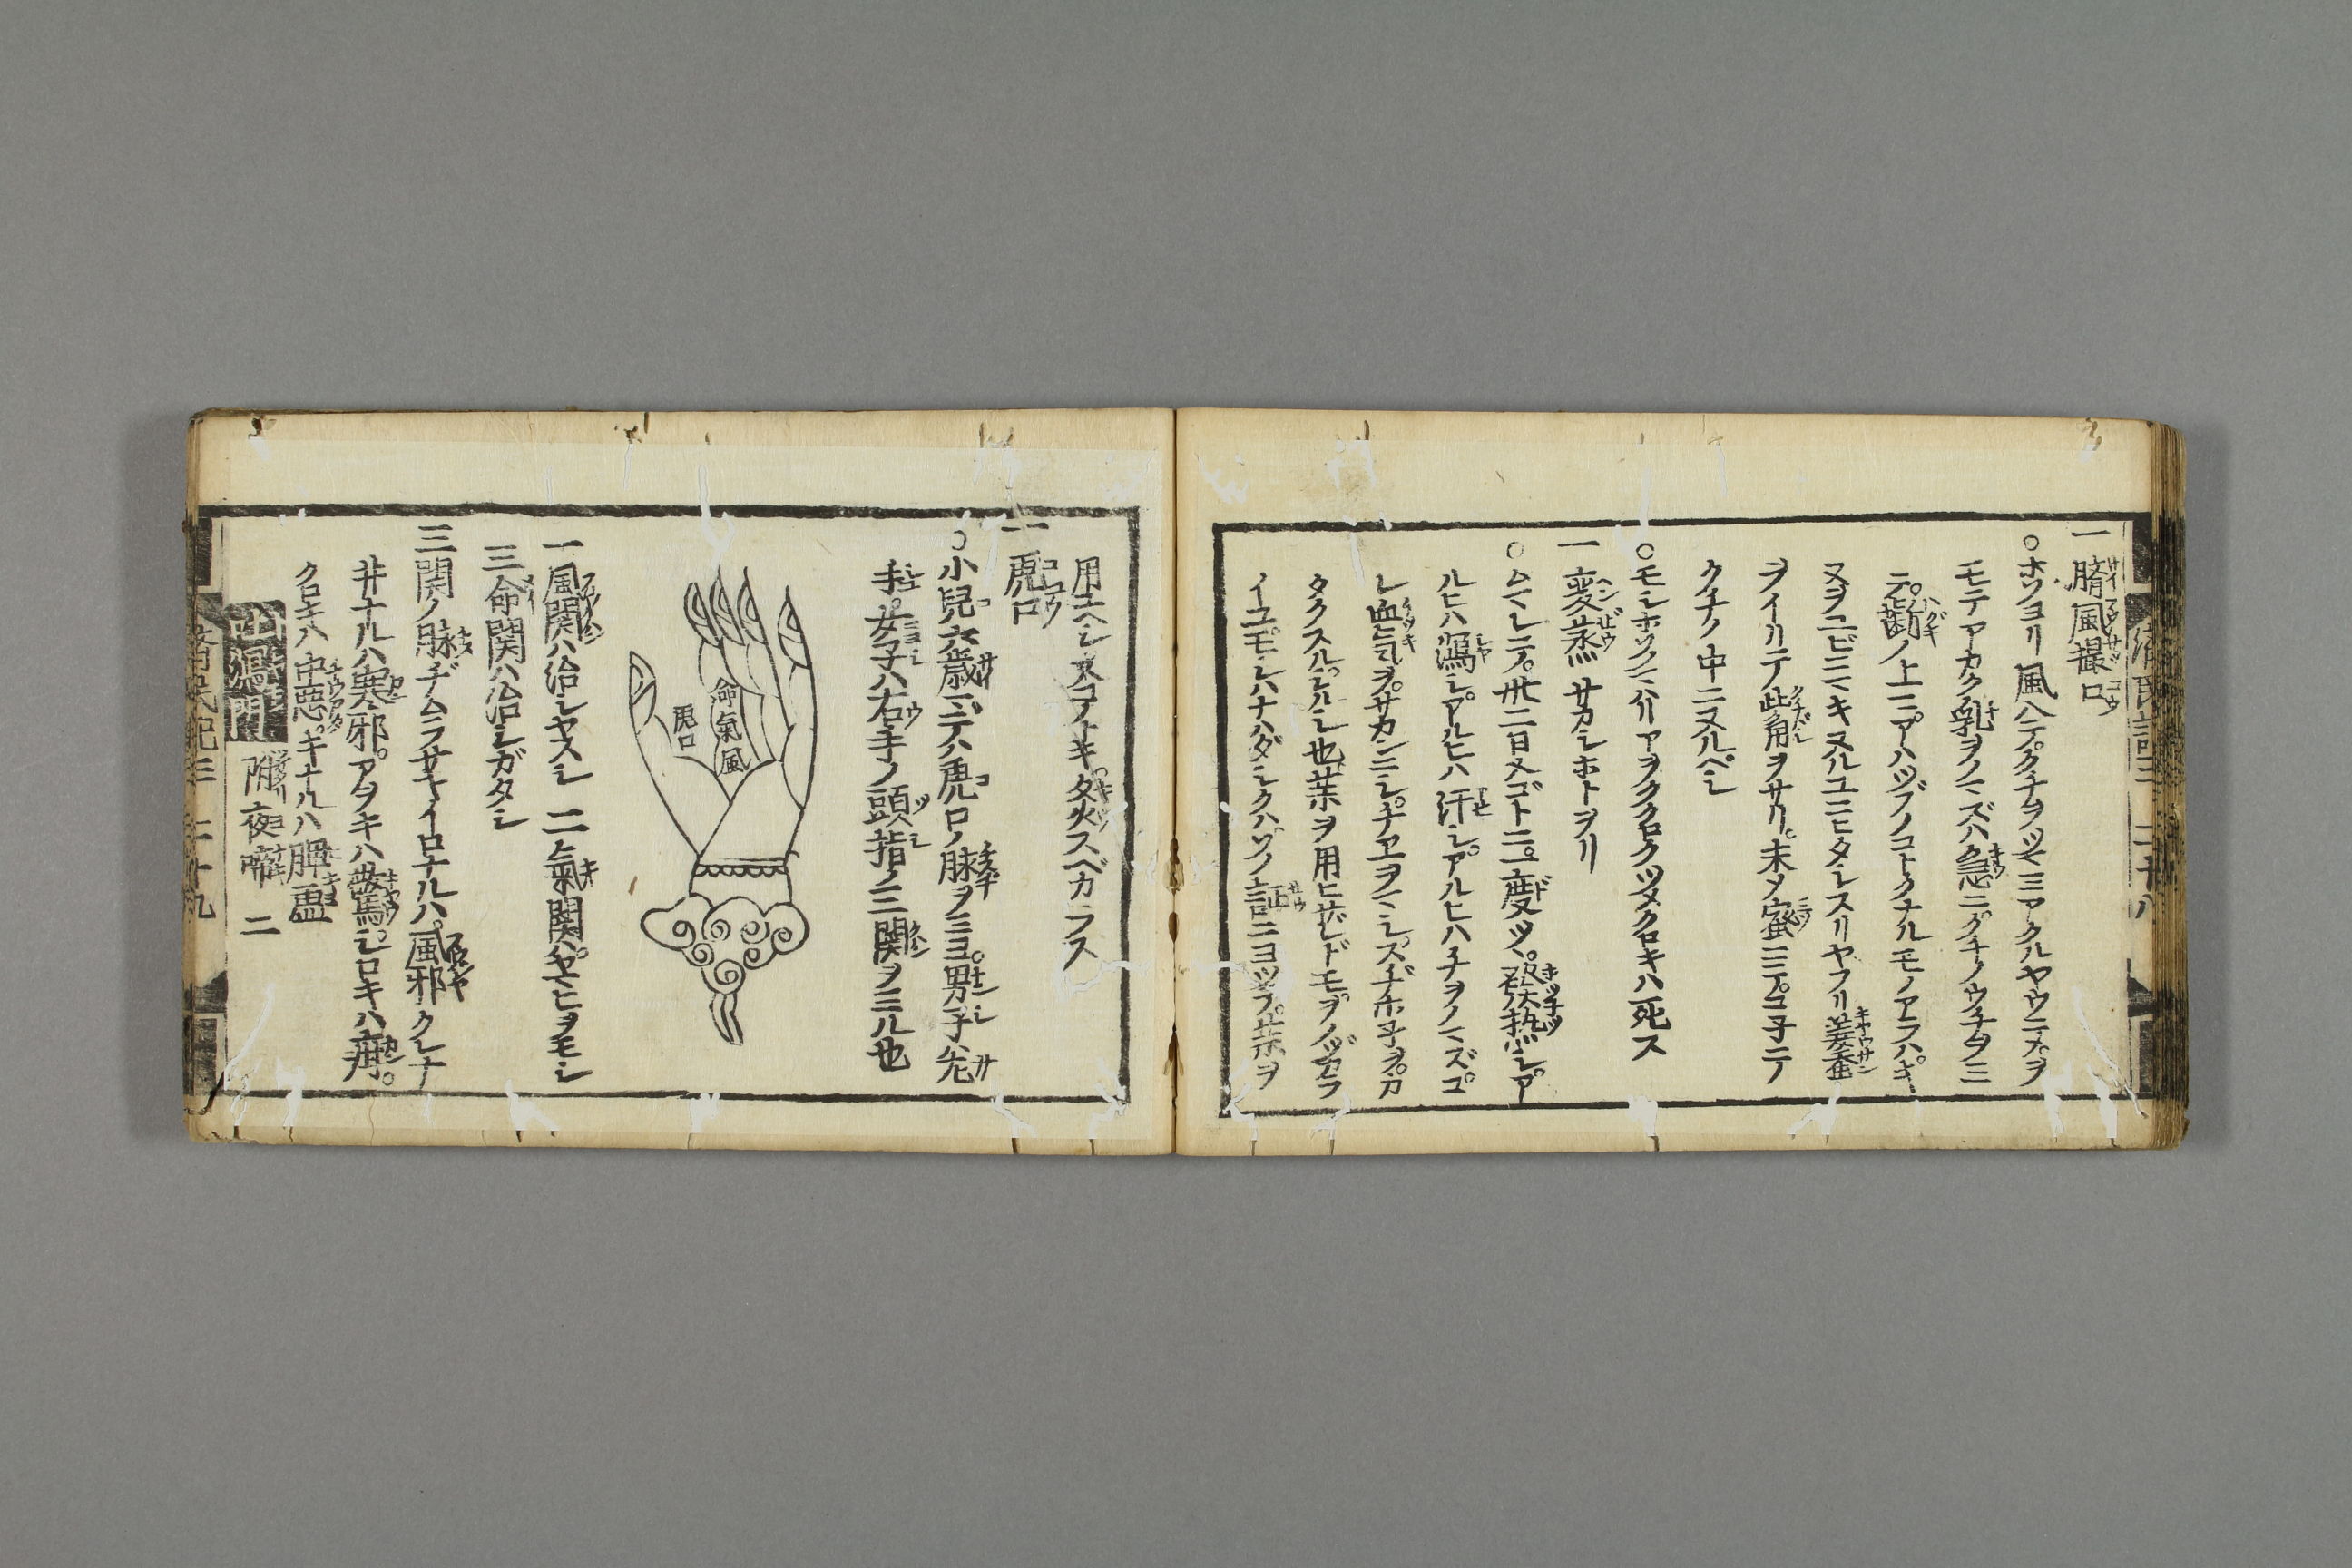 一臍風撮口
○ホソヨリ風ハテ。クチヲツヽミアクルヤウニメ。ヲ
モテアカク乳ヲノマズハ急ニクチノウチヲミ
テ。齗ノ上ニ。アハツブノコトクナルモノアラハ。キ
ヌヲユビニマキヌルユニヒタシスリヤフリ姜蚕
ヲイリテ觜ヲサリ。末メ蜜ニテ。コ子テ
クチノ中ニヌルヘシ
○モシホソノマハリアヲククロクツメクロキハ死ス
一変蒸 サカシホトヲリ
○ムマレテ。卅二日メゴトニ。一度ツヽ。發热シ。ア
ルヒハ瀉シ。アルヒハ汗シ。アルヒハチヲノマズ。コ
レ血気ヲ。サカンニシ。チヱヲマシ。スヂホ子ヲ。カ
タクスル。シルシ也。薬ヲ用ヒザレドモ。ヲノヅカラ
イユ。モシハナハダシクハ。ソノ証ニヨツテ。薬ヲ
用ユヘシ。又コノトキ。灸スベカラス
一虎口
○小兒六歳マデハ虎口ノ脉ヲミヨ。男子ハ左
手。女子ハ右手ノ頭指ノ三関ヲミル也
命氣風
虎口
一風関ハ治シヤスシ 二氣関ハ。ヤマヒヲモシ
三命関ハ治シガタシ
三関ノ脉スヂムラサキイロナルハ。風邪クレナ
井ナルハ寒邪。アヲキハ驚。シロキハ疳。
クロキハ中惡。キナルハ脾虚
附夜啼 二